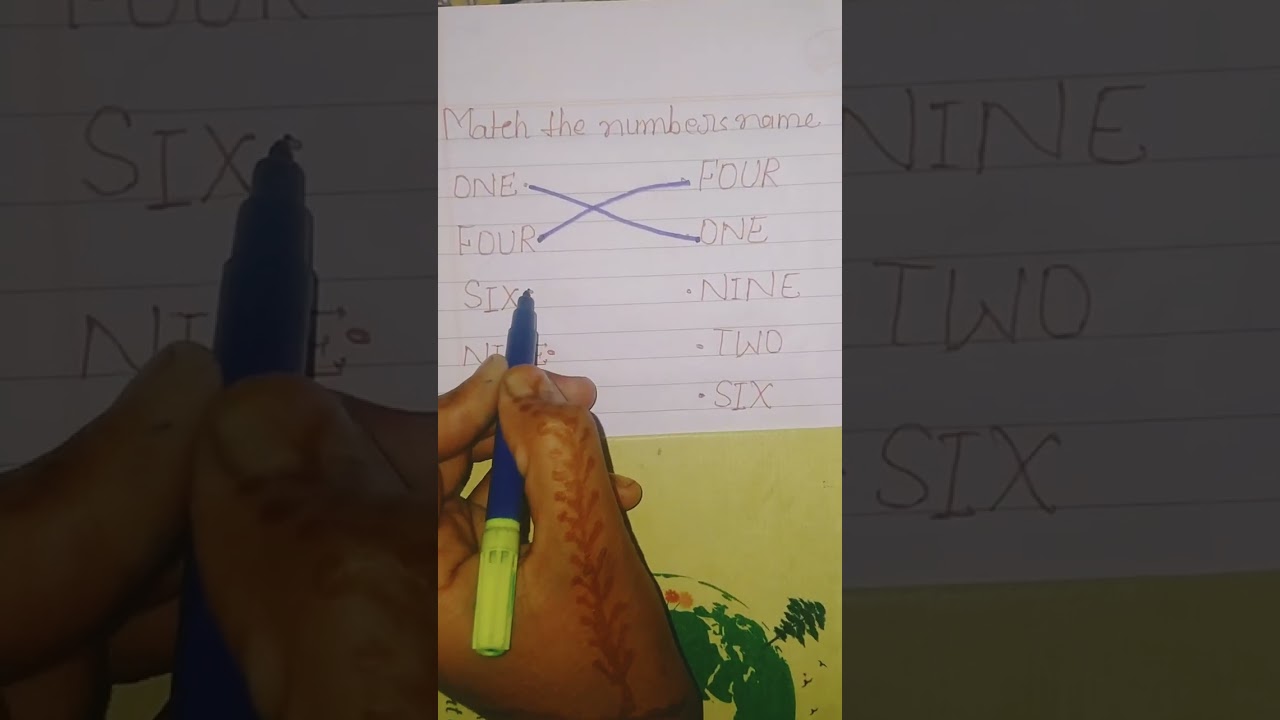 Match the numbers name
ONE FOUR
FOUR ONE
SIX NINE
TWO
SIX